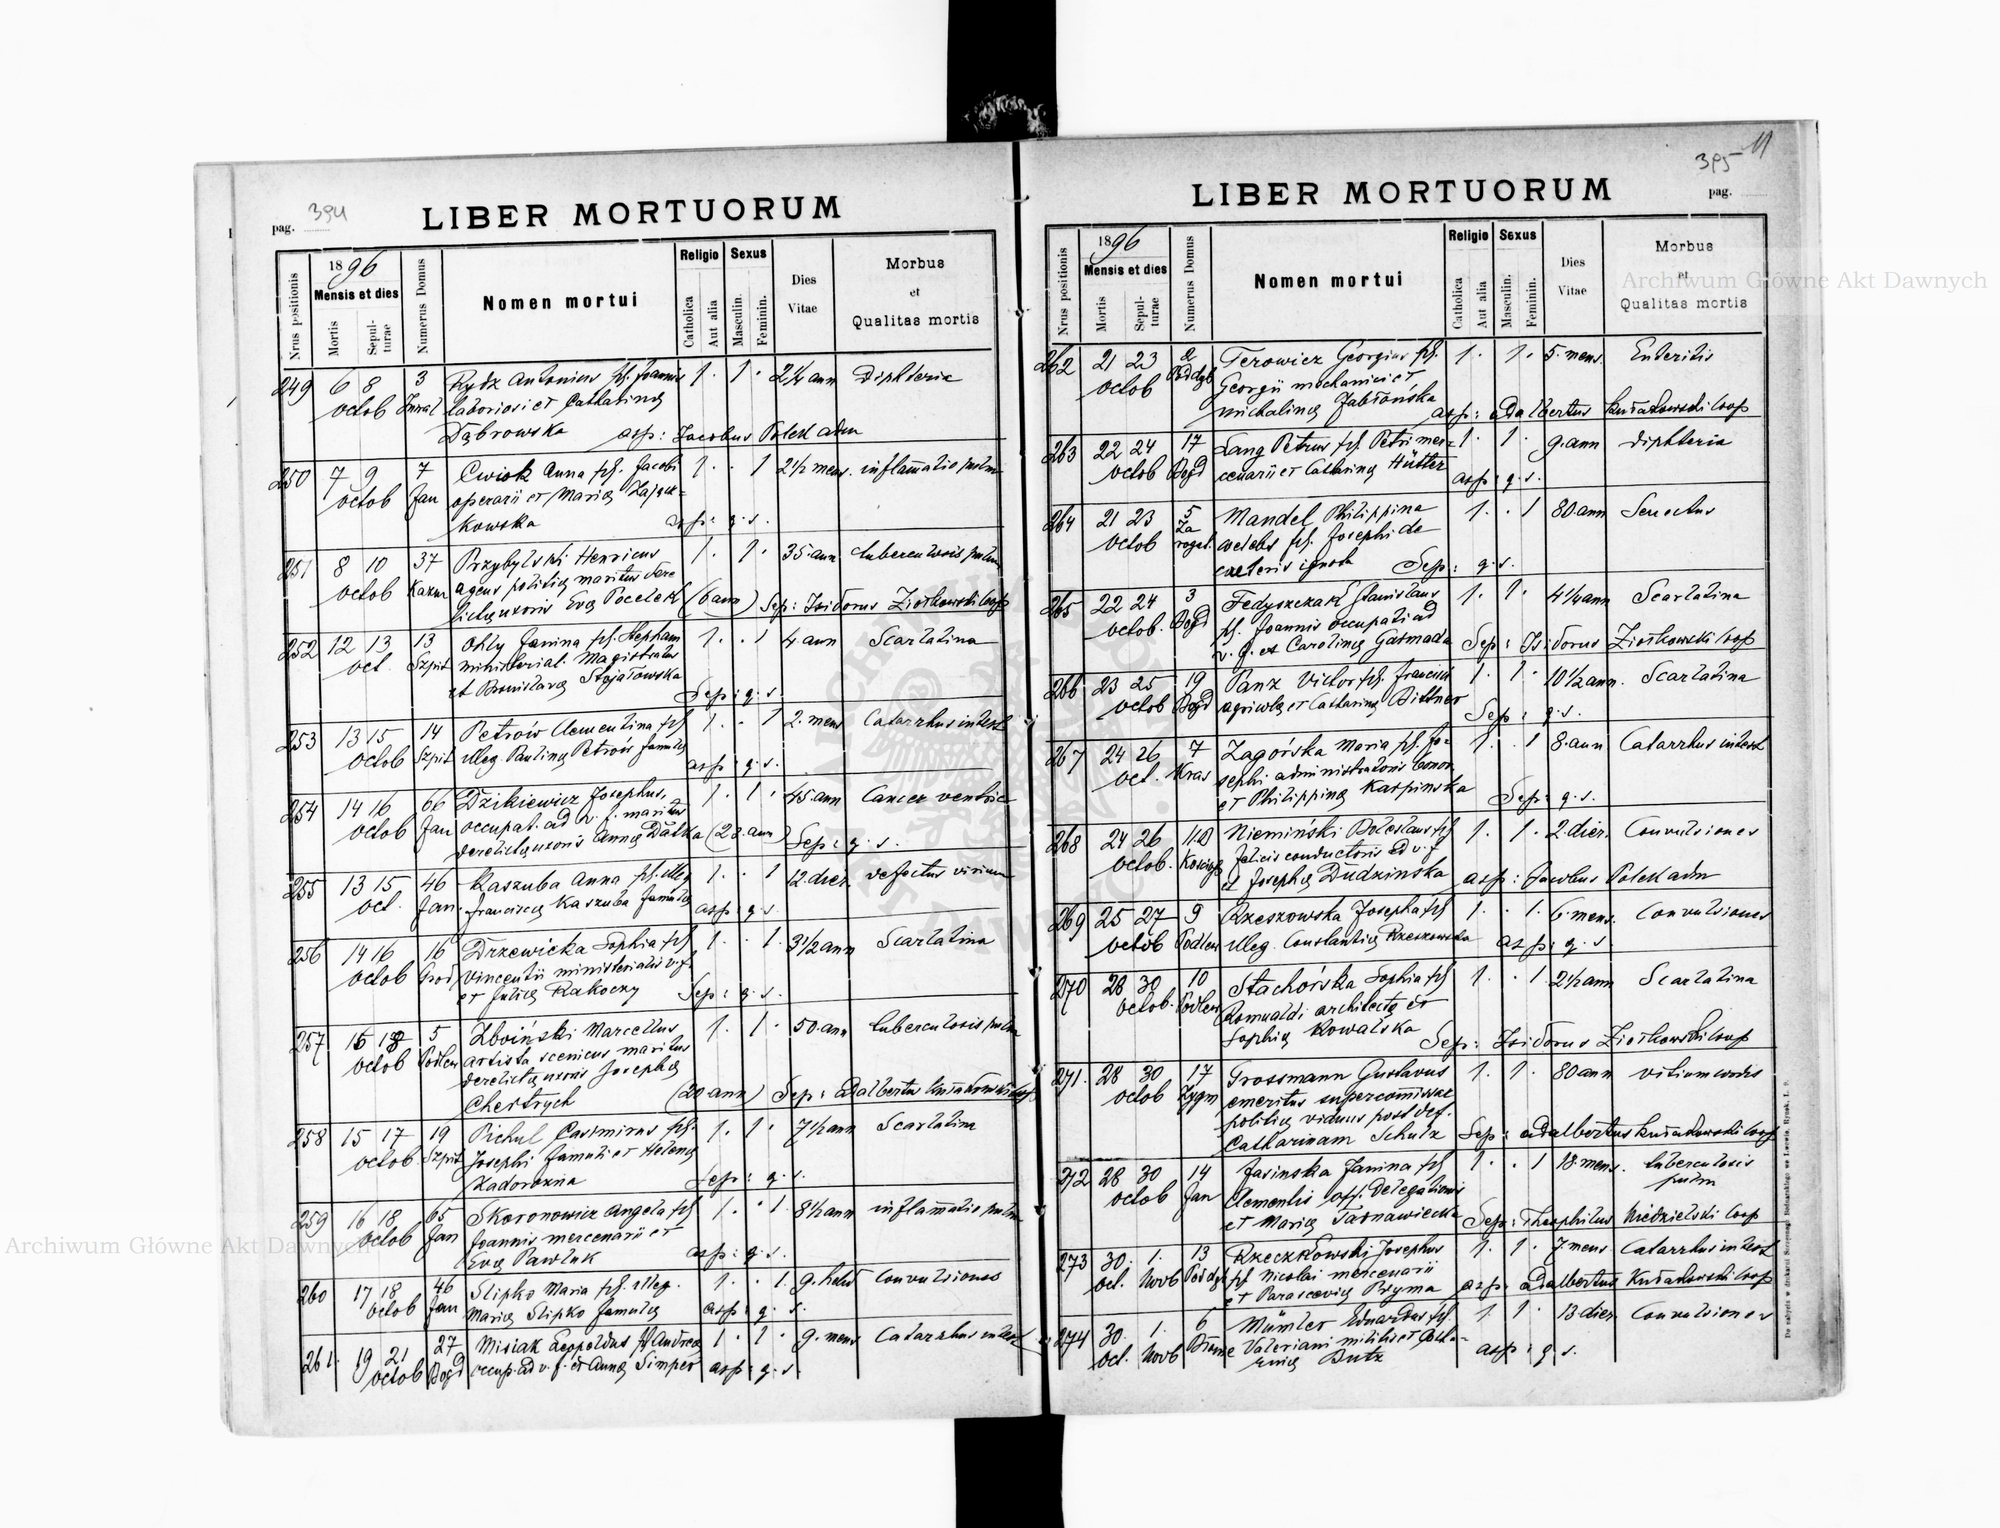 pag. 394
LIBER MORTUORUM
Nrus positionis
1896
Mensis et dies
Mortis
Sepulturae
Numerus Domus
Nomen mortui
Religio
Catholica
Aut alia
Sexus
Masculin.
Feminin.
Dies
Vitae
Morbus
et
Qualitas mortis
249 6 8 3 Rydz Antonius fil. Joannis 1. 1. 2¼ ann Diphteria
octob laboriosi et Catharinę
Dąbrowska asp: Jacobus Polek adm
250 7 9 7 Cwiok Anna fil. Jacobi 1. . 1 2½ mens. inflamatio pulm
octob Jan operarii et Marię Zającz-
kowska asp: q. s.
251 8 10 37 Przybylski Henricus 1. 1. 35. ann tuberculosis pulm
octob Kazm agens politię maritus dere
lictę uxoris Evę Pocełek (6 ann) Sep: Isidorus Ziołkowski Coop
252 12 13 13 Ohly Janina fil. Stephani 1. . 1 4 ann Scarlatina
oct. Szpit ministerial. Magistratus
et Bronislavę Stojałowska Sep: q. s.
253 13 15 14 Petrów Clementina fil 1. . 1 2. mens Catarrhus intest
octob Szpit illeg. Paulinę Petrów famulę
asp: q. s.
254 14 16 66 Dzikiewicz Josephus, 1. 1. 45. ann Cancer ventric
octob Jan occupat. ad v. f. maritus
derelictę uxoris Annę Dałka (22. ann) Sep: q. s.
255 13 15 46 Kaszuba Anna fil. illeg 1. . 1 12. dier. defectus virium
oct. Jan. Franciscę Kaszuba famulę asp: q. s.
256 14 16 16 Drzewicka Sophia fil 1. . 1. 3½ ann Scarlatina
octob Grod Vincentii ministerialis v. f.
et Julię Rakoczy Sep: q. s.
257 16 18 5 Zboiński Marcellus 1. 1. 50. ann tuberculosis pulm
octob Podlew artista scenicus maritus
derelictę uxoris Josephę
Chertrych (20 ann) Sep: Adalbertus Kułakowski Coop
258 15 17 19 Pichul Casimirus fil. 1. 1. 7½ ann Scarlatin
octob Szpit Josephi famuli et Helenę
Zadorozna Sep: q. s.
259 16 18 65 Skoronowicz Angela fil 1. . 1 8½ ann inflamatio pulm
octob Jan Joannis mercenarii et
Evę Pawluk asp: q. s.
260 17 18 46 Slipko Maria fil. illeg. 1. . 1. 9. hebd Convulsiones
octob Jan Marię Slipko famulę asp: q. s.
261. 19 21 27 Misiak Leopoldus fil Andreę 1. 1. 9. mens Catarrhus intest
octob Bogd occup. ad v. f. et Annę Simper asp: q. s.
395 11
pag.
LIBER MORTUORUM
Nrus positionis
1896
Mensis et dies
Mortis
Sepulturae
Numerus Domus
Nomen mortui
Religio
Catholica
Aut alia
Sexus
Masculin.
Feminin.
Dies
Vitae
Morbus
et
Qualitas mortis
262 21 23 2 Terowicz Georgius fil. 1. 1. 5. mens. Enteritis
octob Poddęb Georgii mechanici et
Michalinę Jabłońska asp: Adalbertus Kułakowski Coop
263 22 24 17 Lang Petrus fil. Petri mer= 1. 1. 9. ann Diphteria
octob Bogd cenarii et Catharinę Hütter
asp: q. s.
264 21 23 5 Mandel Philippina 1. . 1 80. ann Senectus
octob Za rogat. coelebs fil. Josephi de
caeteris ignota Sep: q. s.
265 22 24 3 Fedyszczak Stanislaus 1. 1. 4¼ ann Scarlatina
octob. Bogd fil. Joannis occupati ad
v. f. et Carolinę Garmada Sep: Isidorus Ziołkowski Coop
266 23 25 19 Panz Victor fil. Francisci 1. 1. 10½ ann. Scarlatina
octob Bogd agricolę et Catharinę Bittner
Sep: q. s.
267 24 26 7 Zagórska Maria fil. Jo= 1. . 1 8. ann Catarrhus intest
oct. Kras sephi administratoris bonor
et Philippinę Karpinska Sep: q. s.
268 24 26 11.D Niemiński Boleslaus fil 1. 1. 2. dier. Convulsiones
octob. Felicis conductoris ad v. f
et Josephę Dudzinska asp: Jacobus Polek adm
269 25 27 9 Rzeszowska Josepha fil 1. . 1. 6. mens. Convulsiones
octob Podlew illeg. Constantię Rzeszowska asp: q. s.
270 28 30 10 Stachórska Sophia fil 1. . 1 2½ ann Scarlatina
octob. Podlew Romualdi architectę et
Sophię Kowalska Sep: Isidorus Ziołkowski Coop
271. 28 30 17 Grossmann Gustavus 1. 1. 80 ann vitium cordis
octob Zygm emeritus supercomissar
politię viduus post def.
Catharinam Schulz Sep: Adalbertus Kułakowski Coop
272 28 30 14 Jasinska Janina fil 1. . 1 18. mens. tuberculosis
octob Jan Clementis off. delegationis pulm
et Marię Tarnawiecka Sep: Theophilus Niedzielski Coop
273 30. 1. 13 Rzeczkowski Josephus 1. 1. 7. mens Catarrhus intest
oct. Novb Poddęb fil Nicolai mercenarii
et Parascevię Pryma asp: Adalbertus Kułakowski Coop
274 30. 1. 6 Mümler Eduardus fil. 1. 1. 13. dier Convulsiones
oct. Novb Valeriani militis et Catha-
rinę Butz asp: q. s.
Archiwum Główne Akt Dawnych
Archiwum Główne Akt Dawnych